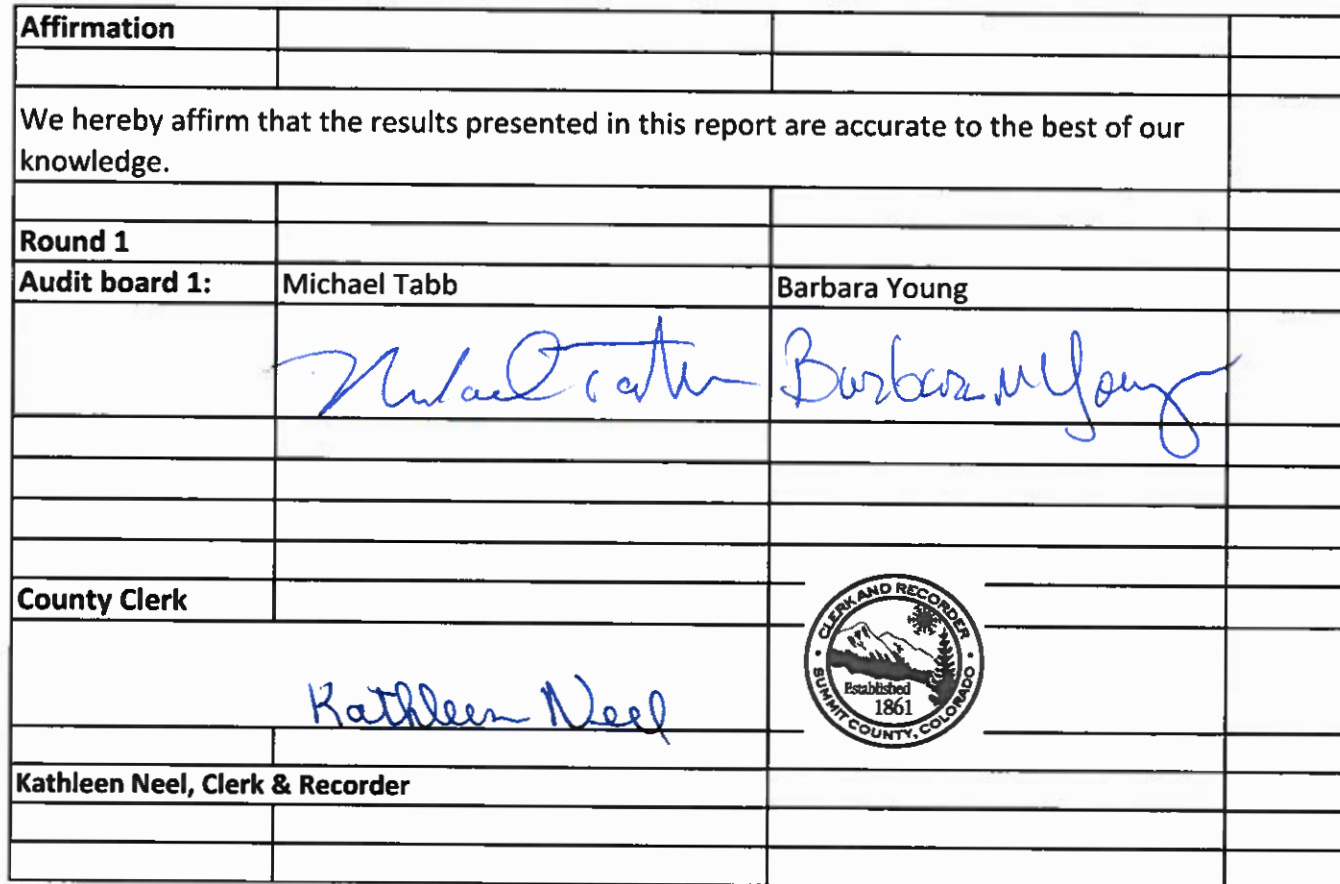 Affirmation
We hereby affirm that the results presented in this report are accurate to the best of our
knowledge.
Round 1
Audit board 1: Michael Tabb Barbara Young
Michael Tabb Barbara M Young
County Clerk
CLERK AND RECORDER
Established
1861
SUMMIT COUNTY, COLORADO
Kathleen Neel
Kathleen Neel, Clerk & Recorder